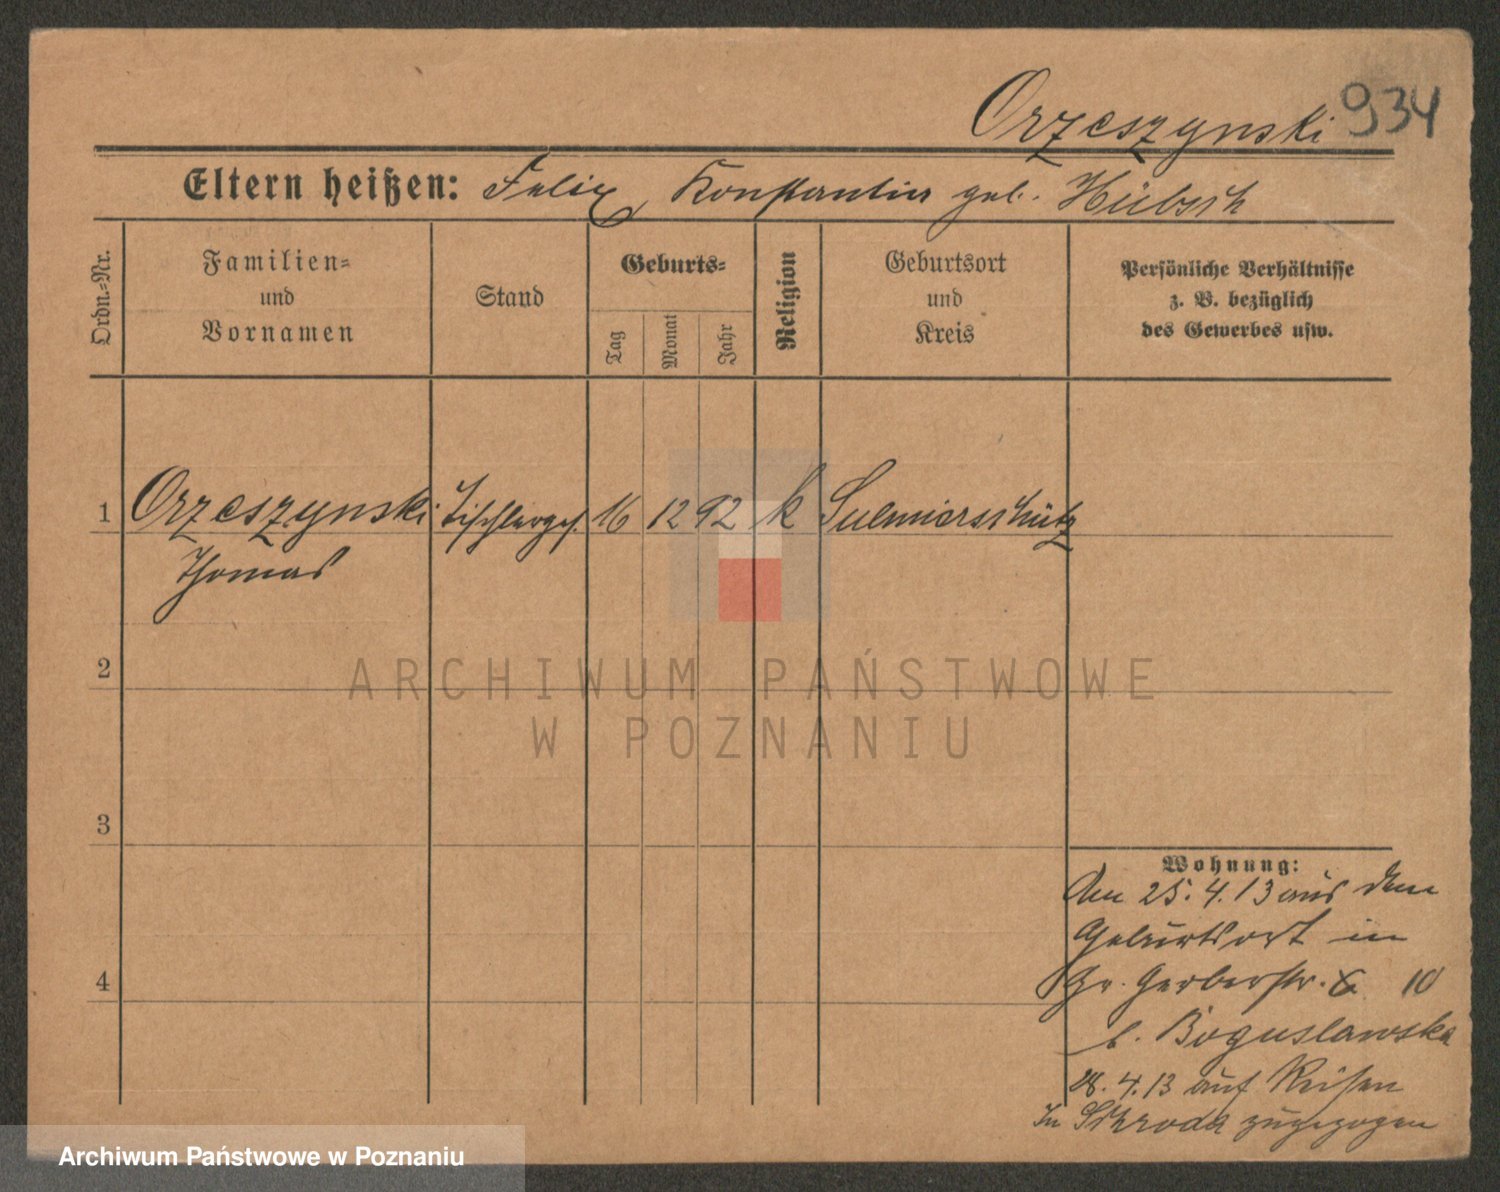 Orzeszynski 934
Eltern heißen: Felix, Konstantia geb. Hübsch
Ordn.=Nr.
Familien=
und
Vornamen
Stand
Geburts=
Tag
Monat
Jahr
Religion
Geburtsort
und
Kreis
Persönliche Verhältnisse
z. B. bezüglich
des Gewerbes usw.
1 Orzeszynski Tischlerges. 16 12 92 k Sulmierschütz
Thomas
2
3
4
Wohnung:
Am 25.4.13 aus dem
Geburtsort in
Gr. Gerberstr. 10
b. Boguslawska
28.4.13 auf Reisen
In Schroda zugezogen
ARCHIWUM PAŃSTWOWE
W POZNANIU
Archiwum Państwowe w Poznaniu